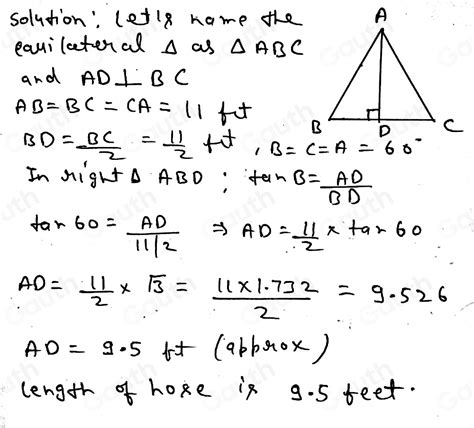 Solution: Let's name the
equilateral Δ as Δ ABC
and AD ⊥ BC
AB = BC = CA = 11 ft
BD = BC/2 = 11/2 ft, B = C = A = 60°
In right Δ ABD; tan B = AD/BD
tan 60 = AD/11/2 ⇒ AD = 11/2 × tan 60
AD = 11/2 × √3 = 11×1.732/2 = 9.526
AD = 9.5 ft (approx)
length of hose is 9.5 feet.
A
B
D
C